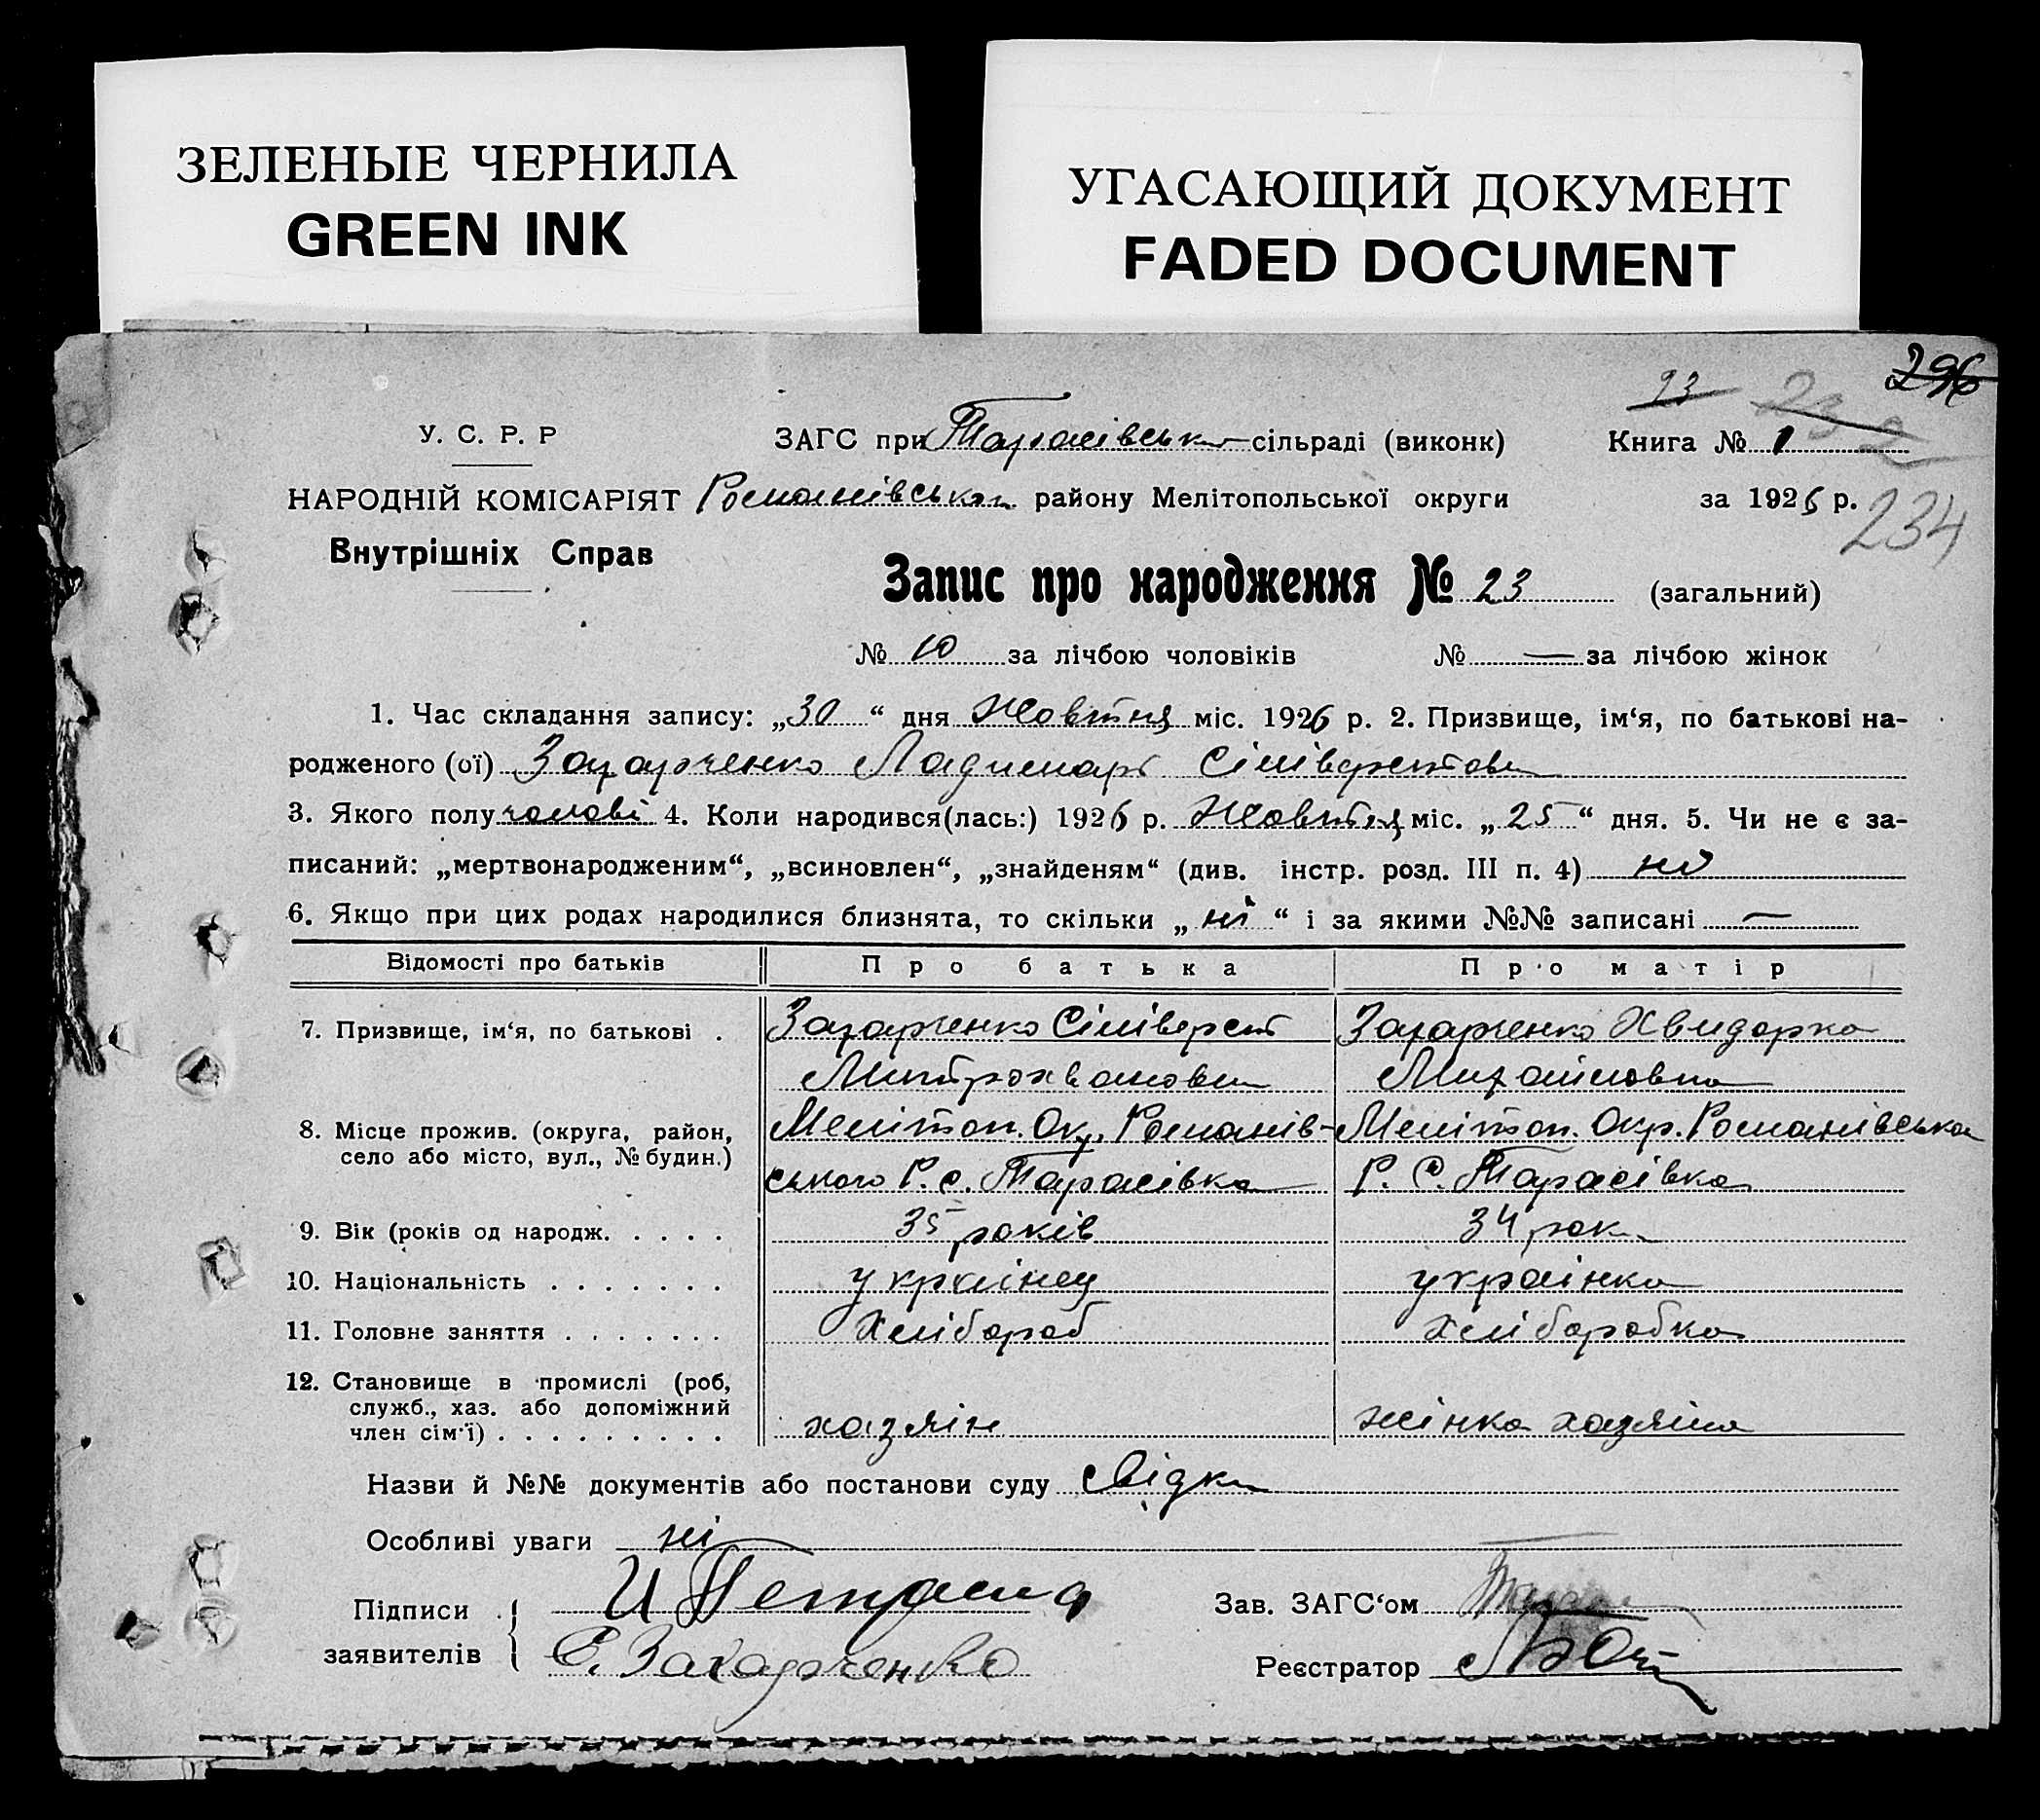 ЗЕЛЕНЫЕ ЧЕРНИЛА
GREEN INK
УГАСАЮЩИЙ ДОКУМЕНТ
FADED DOCUMENT
296
23
232
У. С. Р. Р
ЗАГС при Тарасівськ сільраді (виконк)
Книга № 1
НАРОДНІЙ КОМІСАРІЯТ Романівськ району Мелітопольської округи
за 1926 р.
234
Внутрішніх Справ
Запис про народження № 23 (загальний)
№ 10 за лічбою чоловіків № — за лічбою жінок
1. Час складання запису: „30“ дня Жовтня міс. 1926 р. 2. Призвище, ім‘я, по батькові на-
родженого (ої) Захарченко Ладимарь Сіліверстови
3. Якого полу чолові 4. Коли народився(лась:) 1926 р. Жовтня міс. „25“ дня. 5. Чи не є за-
писаний: „мертвонародженим“, „всиновлен“, „знайденям“ (див. інстр. розд. III п. 4) ні
6. Якщо при цих родах народилися близнята, то скільки „ні“ і за якими №№ записані —
Відомості про батьків
Про батька
Про матір
7. Призвище, ім‘я, по батькові .
Захарченко Сіліверст
Захарченко Хвидорка
Митрохванови
Михайловна
8. Місце прожив. (округа, район,
село або місто, вул., № будин.)
Мелітоп. Окр. Романів-
Мелітоп. Окр. Романівська
ського Р. с. Тарасівка
Р. С. Тарасівка
9. Вік (років од народж. . . . .
35 років
34 рок
10. Національність . . . . . . .
українец
українка
11. Головне заняття . . . . . . .
Хлібороб
хліборобка
12. Становище в промислі (роб,
служб., хаз. або допоміжний
член сім‘ї) . . . . . . . . .
хазяін
жінка хазяіна
Назви й №№ документів або постанови суду свідки
Особливі уваги ні
Підписи
заявителів
И Петраш
С. Захарченко
Зав. ЗАГС‘ом
Реєстратор